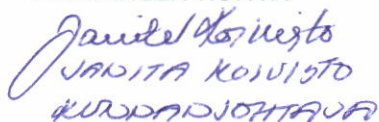 Janita Koivisto
JANITA KOIVISTO
KUNNANJOHTAJA